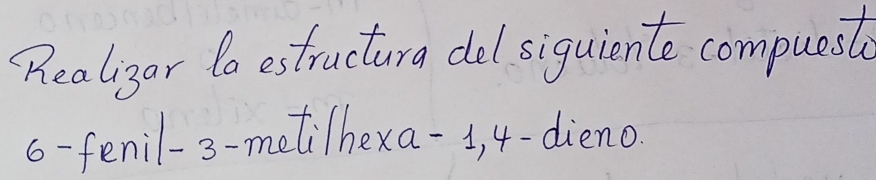 Realizar la estructura del siguiente compuesto
6-fenil-3-metilhexa-1,4-dieno.